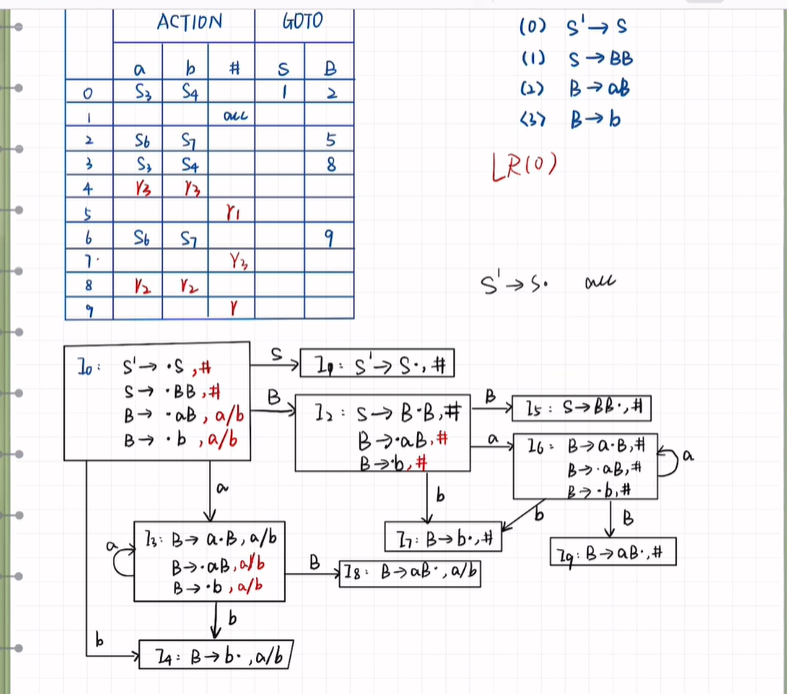 ACTION GOTO
a b # S B
0 S3 S4 1 2
1 acc
2 S6 S7 5
3 S3 S4 8
4 r3 r3
5 r1
6 S6 S7 9
7. r3
8 r2 r2
9 r
(0) S'→S
(1) S→BB
(2) B→aB
(3) B→b
LR(0)
S'→S. acc
I0: S'→·S,#
S→·BB,#
B→·aB,a/b
B→·b,a/b
S
I1: S'→S·,#
B
I2: S→B·B,#
B→·aB,#
B→·b,#
B
I5: S→BB·,#
a
I6: B→a·B,#
B→·aB,#
B→·b,#
a
b
b
B
I7: B→b·,#
I9: B→aB·,#
a
a
I3: B→a·B,a/b
B→·aB,a/b
B→·b,a/b
B
I8: B→aB·,a/b
b
b
I4: B→b·,a/b